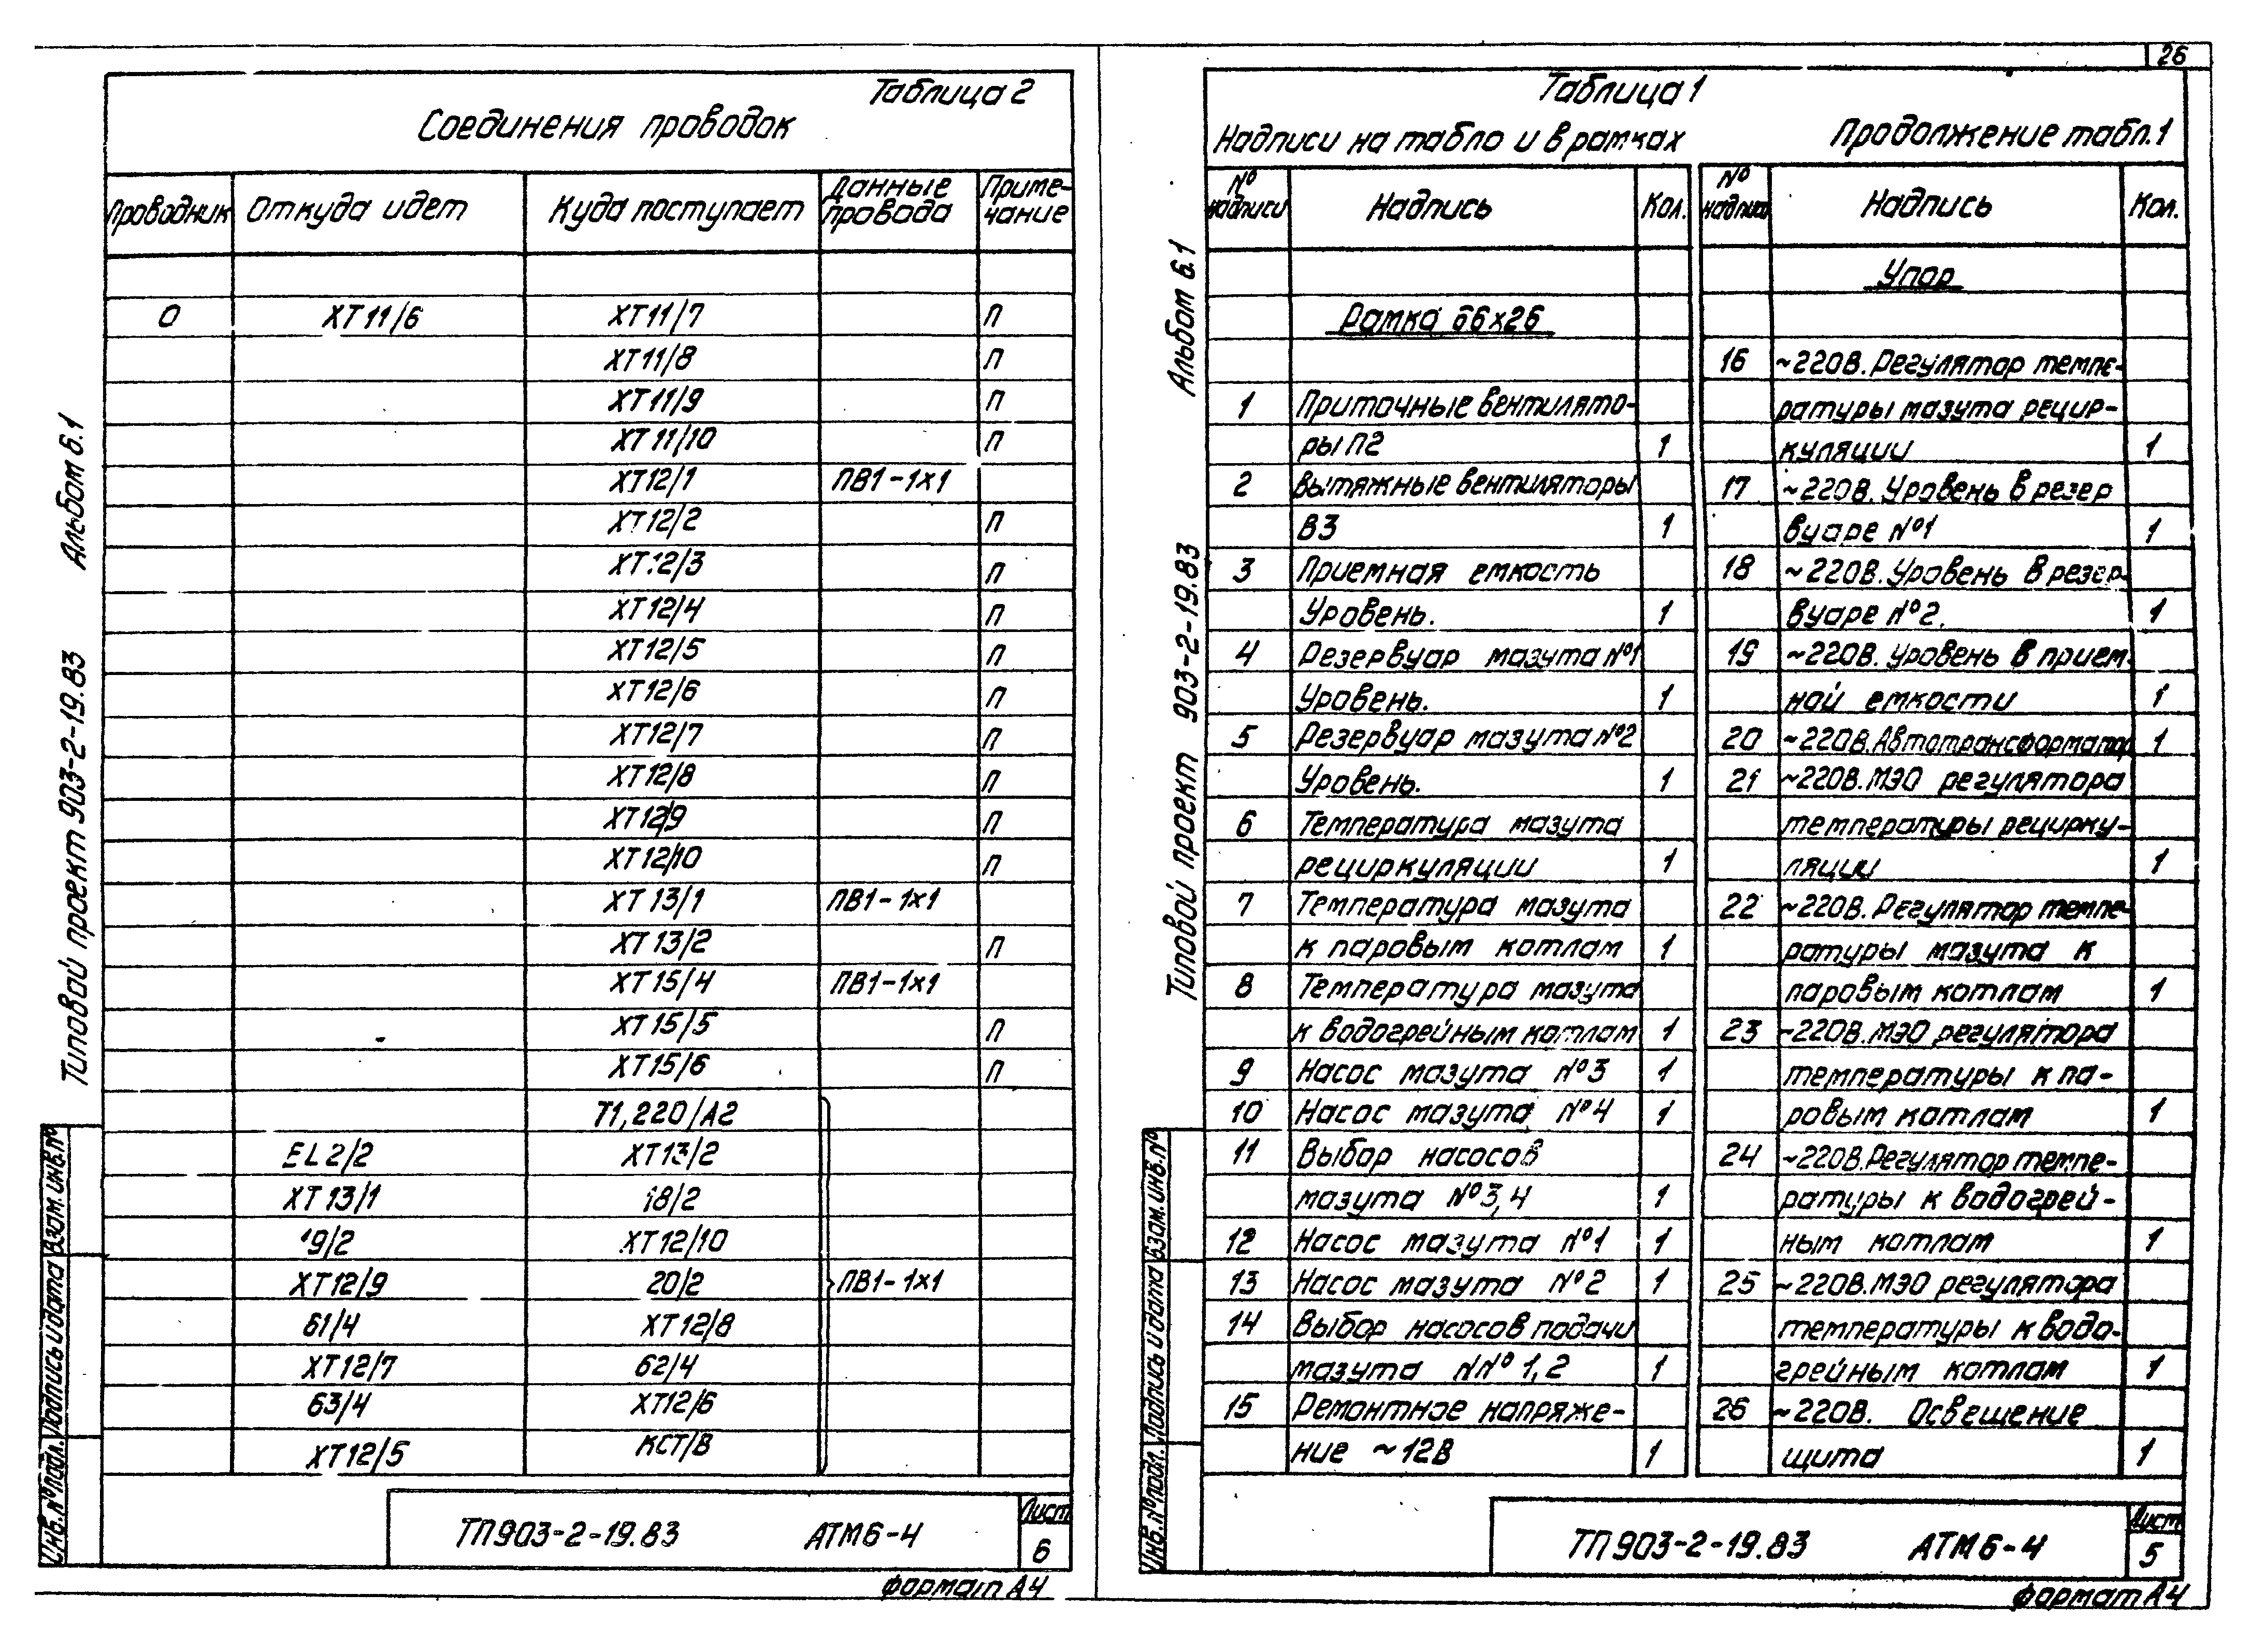 26
Таблица 2
Соединения проводок
Проводник Откуда идет Куда поступает Данные провода Приме-чание
0 ХТ11/6 ХТ11/7 П
ХТ11/8 П
ХТ11/9 П
ХТ11/10 П
ХТ12/1 ПВ1-1х1
ХТ12/2 П
ХТ12/3 П
ХТ12/4 П
ХТ12/5 П
ХТ12/6 П
ХТ12/7 П
ХТ12/8 П
ХТ12/9 П
ХТ12/10 П
ХТ13/1 ПВ1-1х1
ХТ13/2 П
ХТ15/4 ПВ1-1х1
ХТ15/5 П
ХТ15/6 П
Т1,220/А2
EL2/2 ХТ13/2
ХТ13/1 18/2
19/2 ХТ12/10
ХТ12/9 20/2 ПВ1-1х1
61/4 ХТ12/8
ХТ12/7 62/4
63/4 ХТ12/6
ХТ12/5 КСТ/В
ТП903-2-19.83 АТМ6-4
Лист
6
Формат А4
Типовой проект 903-2-19.83 Альбом 6.1
Инв.№подл. Подпись и дата Взам.инв.№
Таблица 1
Надписи на табло и в рамках
№ надписи Надпись Кол.
Рамка 66х26
1 Приточные вентилято-
ры П2 1
2 Вытяжные вентиляторы
В3 1
3 Приемная емкость
Уровень. 1
4 Резервуар мазута №1
Уровень. 1
5 Резервуар мазута №2
Уровень. 1
6 Температура мазута
рециркуляции 1
7 Температура мазута
к паровым котлам 1
8 Температура мазута
к водогрейным котлам 1
9 Насос мазута №3 1
10 Насос мазута №4 1
11 Выбор насосов
мазута №3,4 1
12 Насос мазута №1 1
13 Насос мазута №2 1
14 Выбор насосов подачи
мазута NN° 1,2 1
15 Ремонтное напряже-
ние ~12В 1
Продолжение табл.1
№ надписи Надпись Кол.
Упор
16 ~220В. Регулятор темпе-
ратуры мазута рецир-
куляции 1
17 ~220В. Уровень в резер
вуаре №1 1
18 ~220В. Уровень в резер-
вуаре №2. 1
19 ~220В. Уровень в прием-
ной емкости 1
20 ~220В. Автотрансформатор 1
21 ~220В. МЭО регулятора
температуры рецирку-
ляции 1
22 ~220В. Регулятор темпе-
ратуры мазута к
паровым котлам 1
23 ~220В. МЭО регулятора
температуры к па-
ровым котлам 1
24 ~220В. Регулятор темпе-
ратуры к водогрей-
ным котлам 1
25 ~220В. МЭО регулятора
температуры к водо-
грейным котлам 1
26 ~220В. Освещение
щита 1
ТП903-2-19.83 АТМ6-4
Лист
5
Формат А4
Типовой проект 903-2-19.83 Альбом 6.1
Инв.№подл. Подпись и дата Взам.инв.№